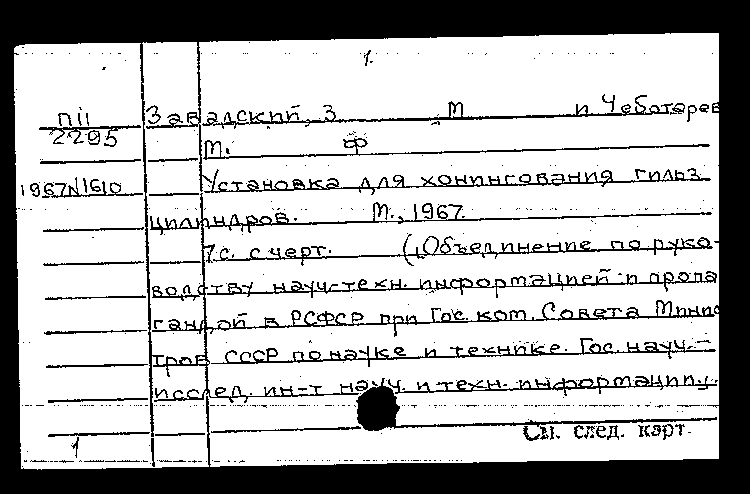 1.
пii Завадский, З М и Чеботарев
2295
М. Ф
1967N1610 Установка для хонингования гильз
цилиндров. М., 1967.
7с. с черт. („Объединение по руко-
водству науч-техн. информацией и пропа
гандой в РСФСР при Гос. ком. Совета Минис
тров СССР по науке и технике. Гос. науч.-
исслед. ин-т науч. и техн. информации„.
См. след. карт.
1